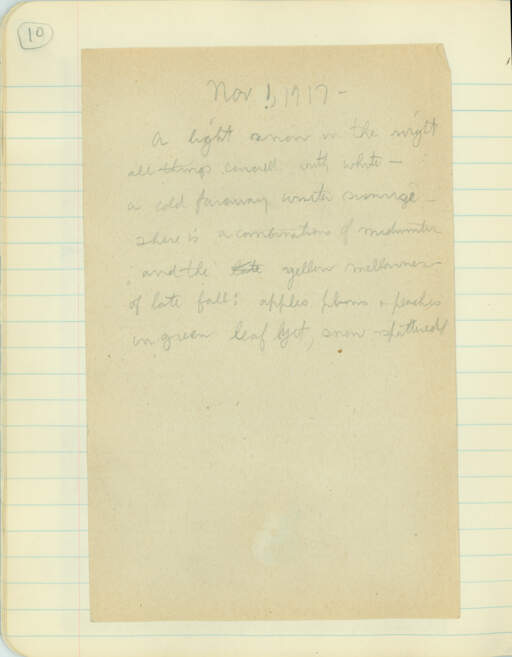 10
Nov 1, 1917 -
A light snow in the night
all things covered with white -
a cold faraway winter sunrise -
There is a combination of midwinter
and the late yellow mellowness
of late fall: apples plums & peaches
in green leaf yet, snow-spattered